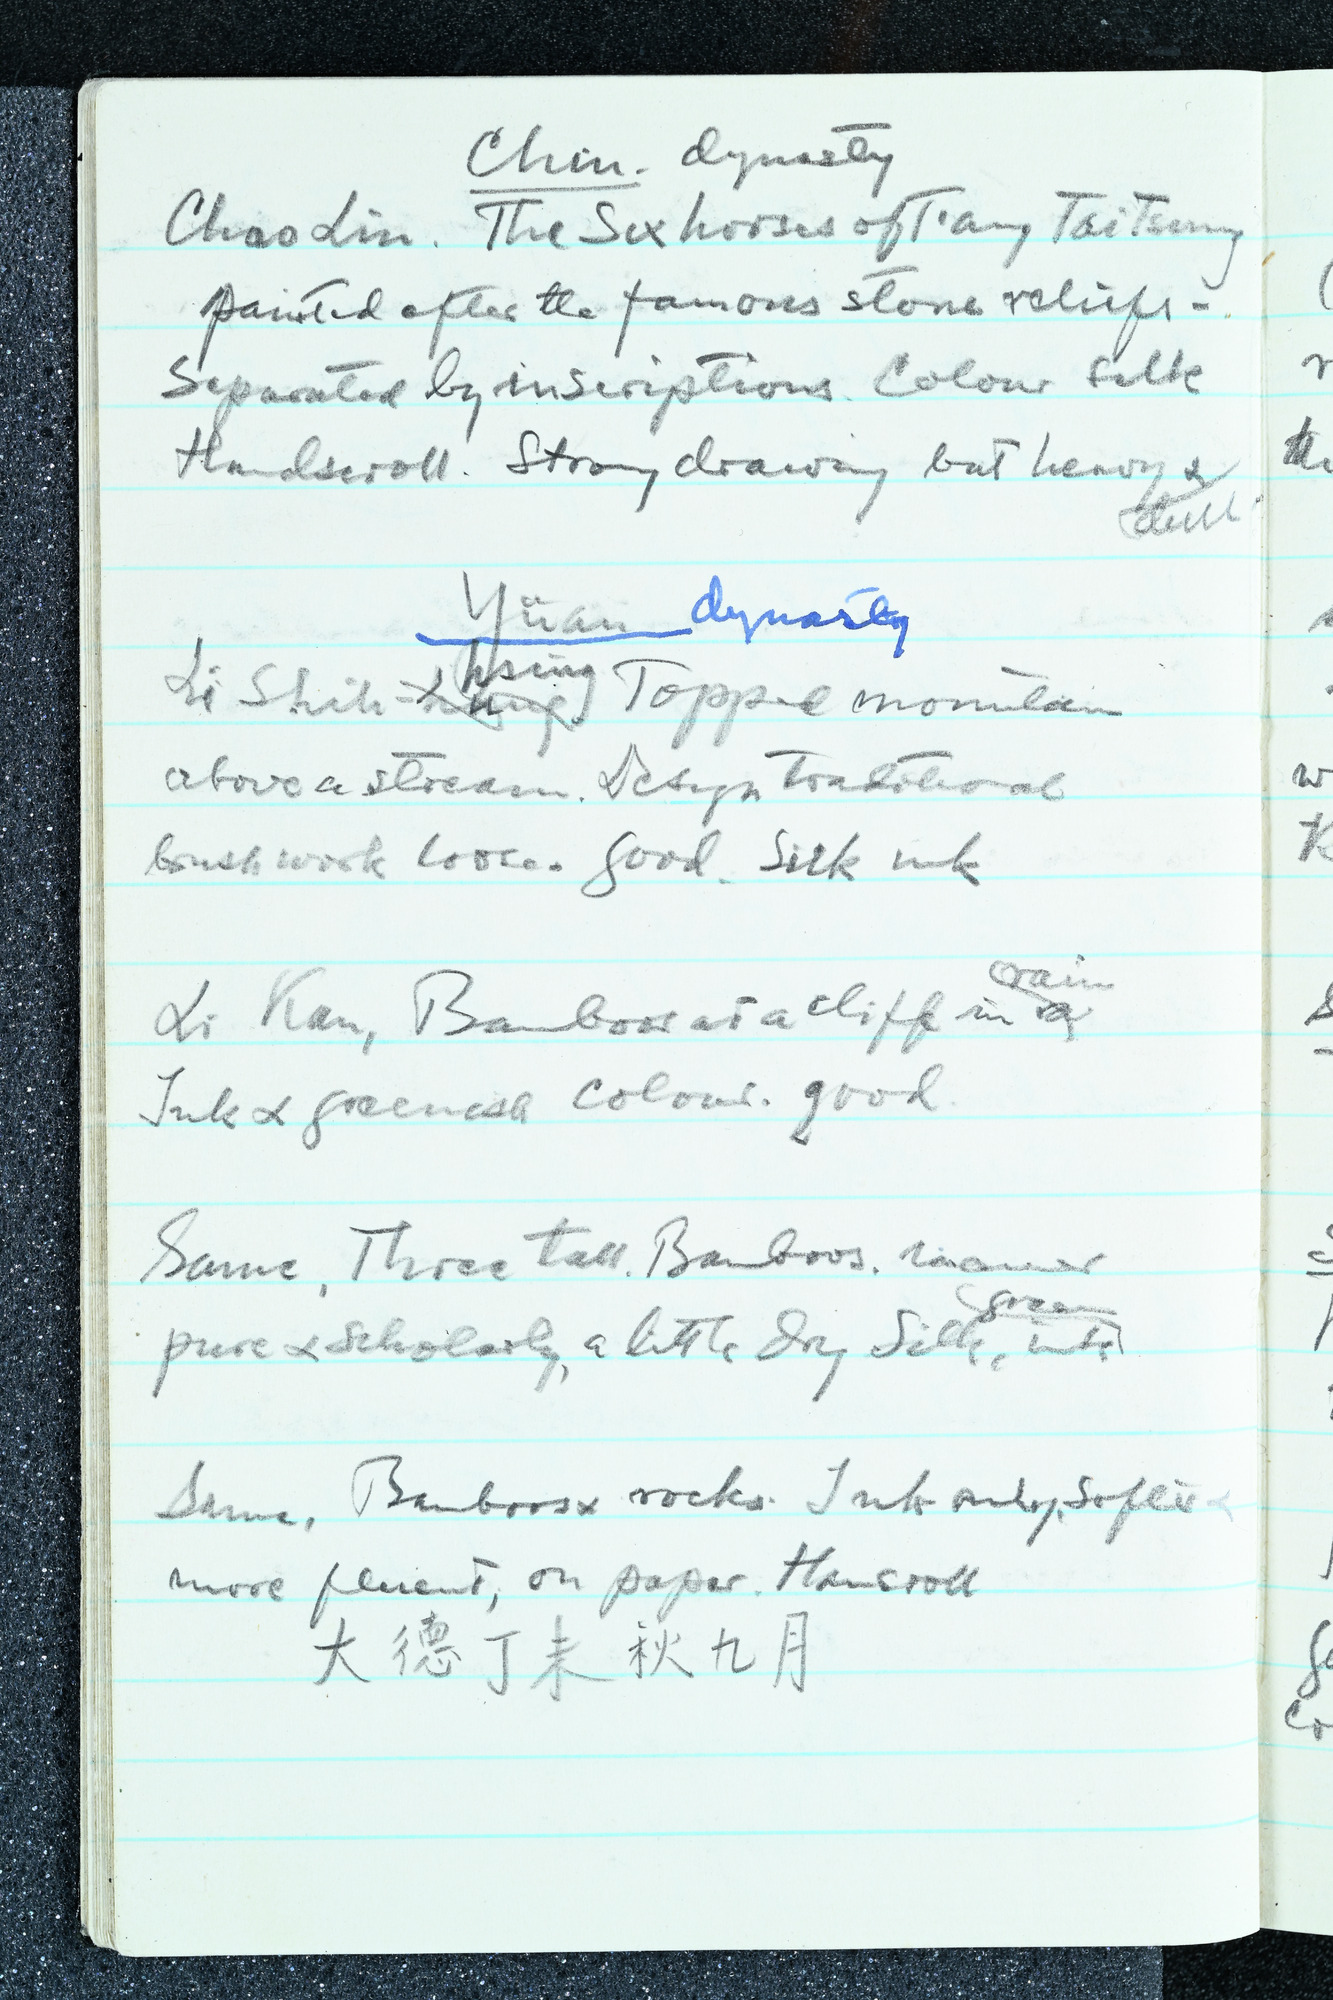 Chin. dynasty
Chao Lin. The Six horses of T'ang Tai Tsung
painted after the famous stone reliefs -
Separated by inscriptions. Colour silk
Handscroll. Strong drawing but heavy &
dull
Yüan dynasty
hsing
Li Shih- Topped mountain
above a stream. Design traditional
brushwork loose. Good. Silk ink
rain
Li Kan, Bamboos at a cliff in
Ink & greenish colour. good.
Same, Three tall Bamboos. manner
green
pure & scholarly, a little dry Silk, ink
Same, Bamboos & rocks. Ink only, softer &
more fluent, on paper. Hanscroll
大德丁未秋九月